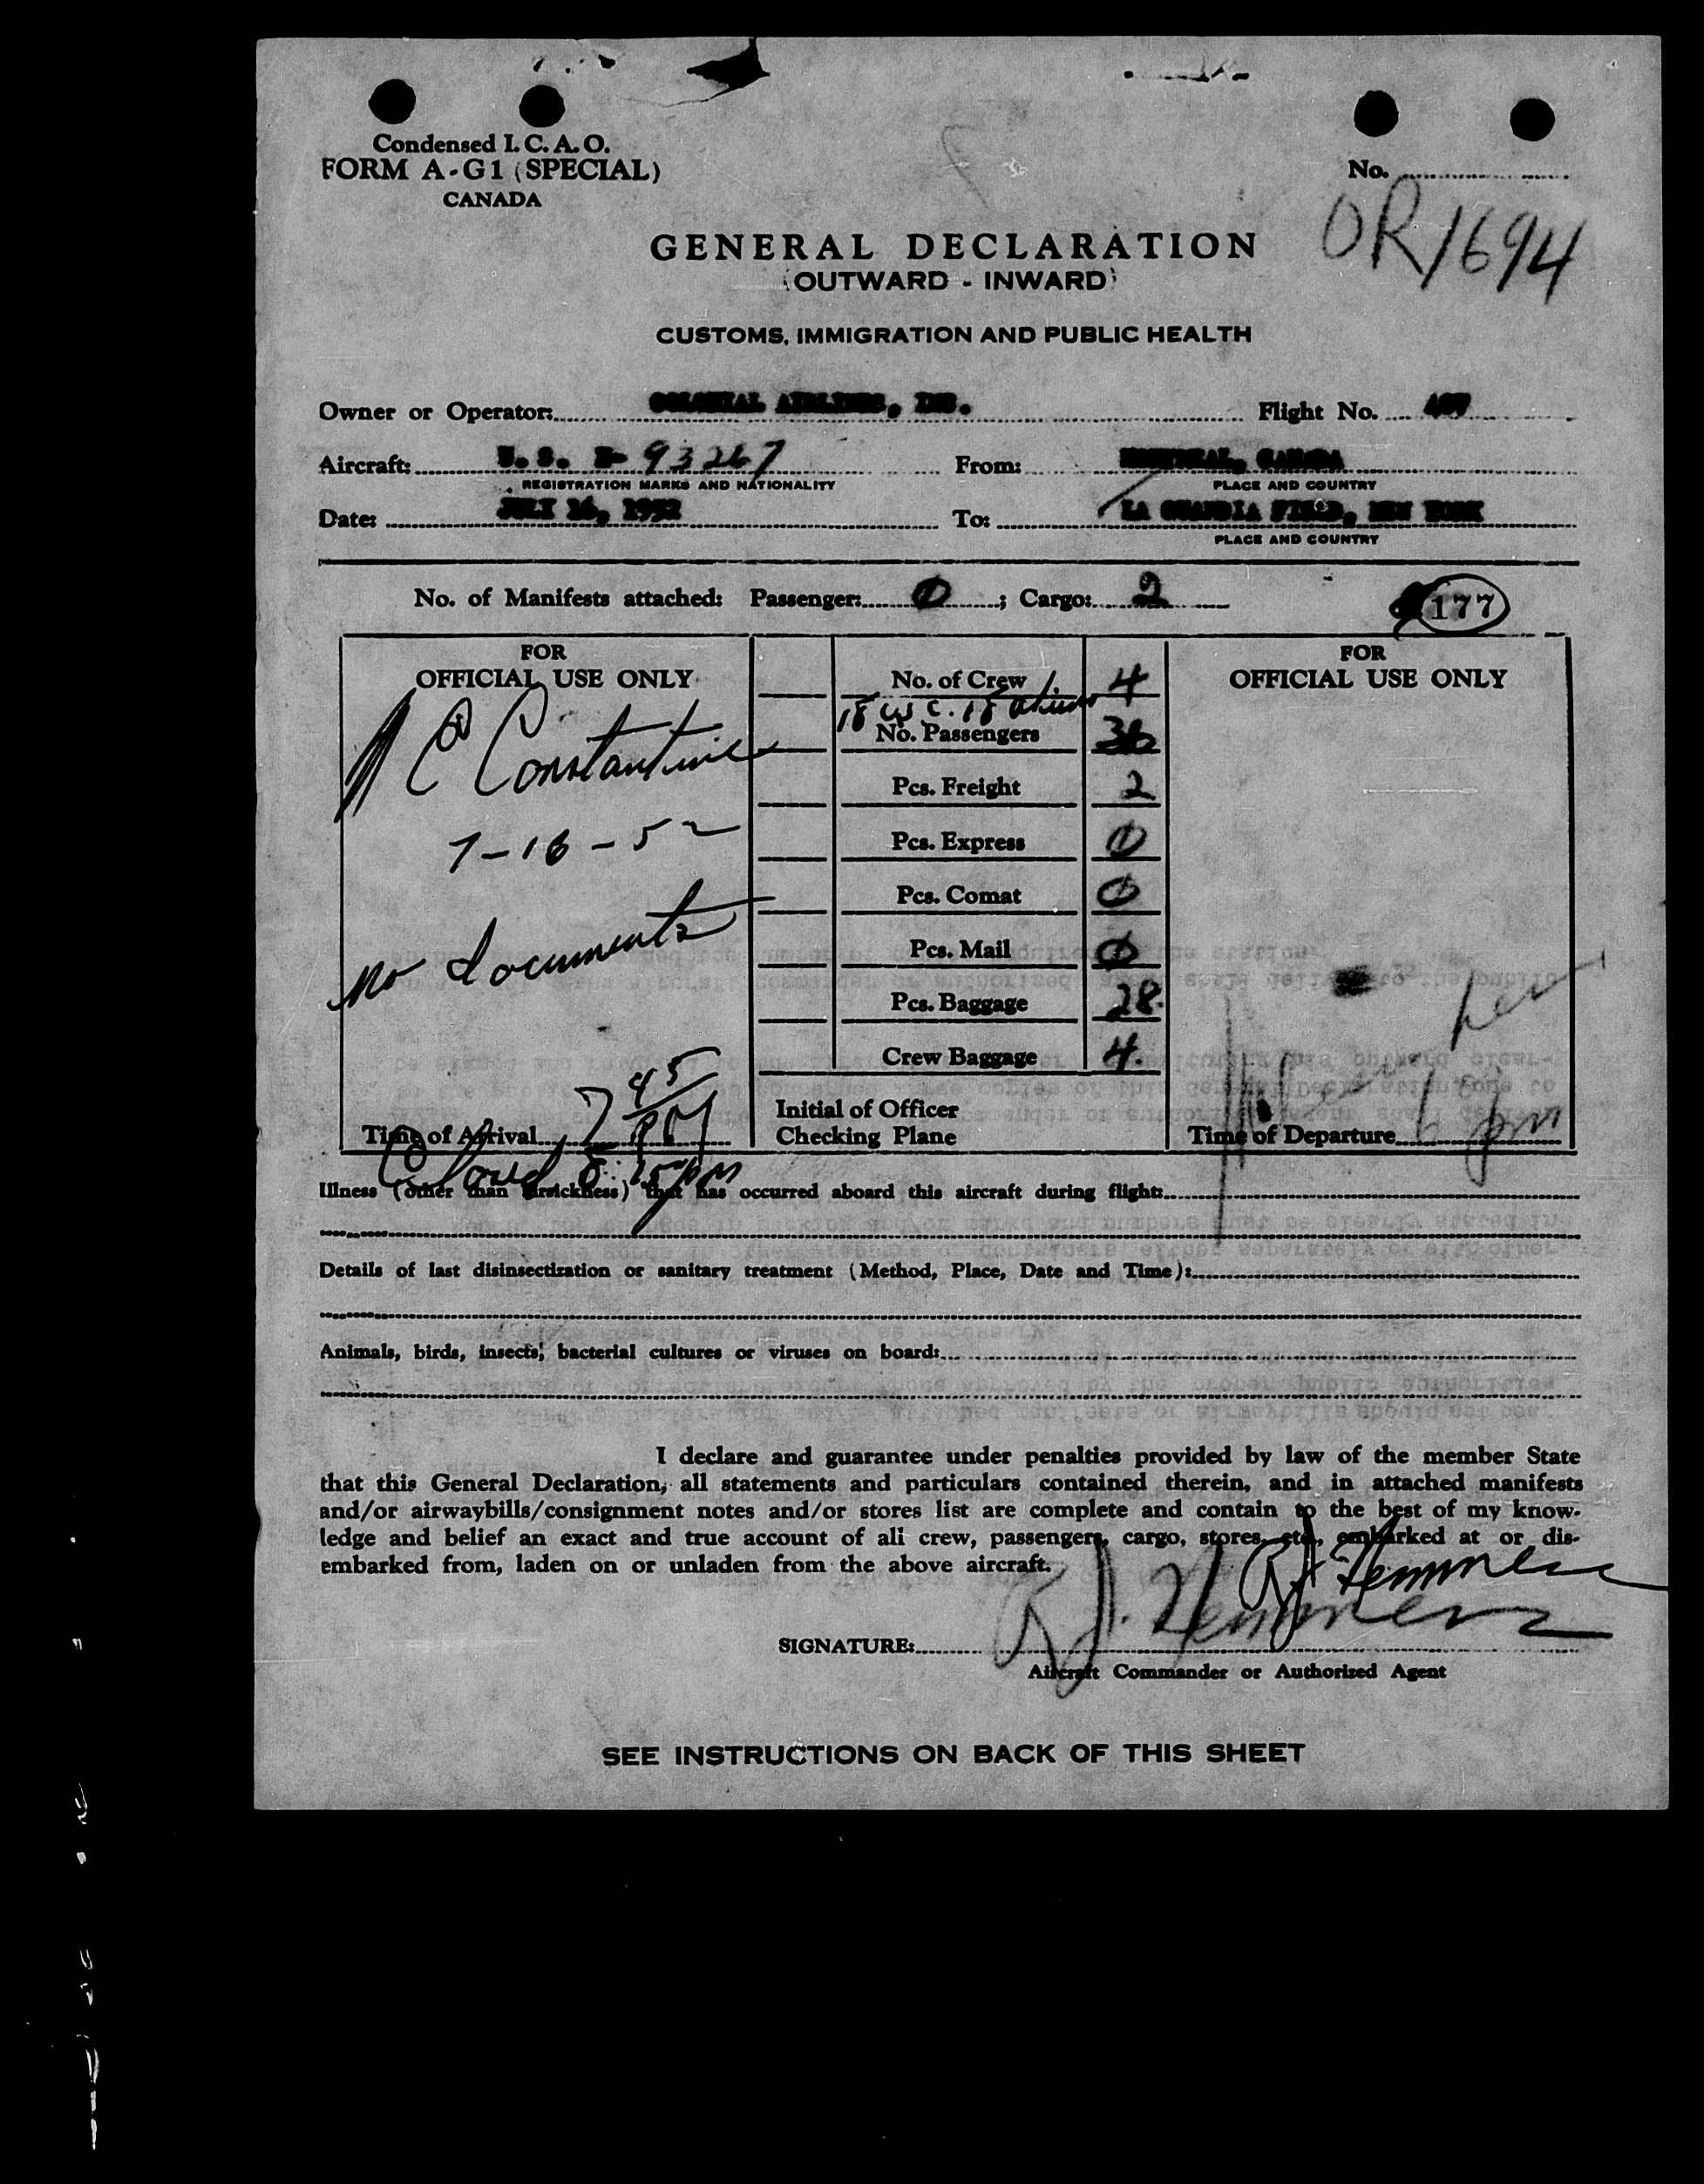 Condensed I. C. A. O.
FORM A-G1 (SPECIAL)
CANADA
No.
OR1694
GENERAL DECLARATION
(OUTWARD - INWARD)
CUSTOMS, IMMIGRATION AND PUBLIC HEALTH
Owner or Operator: COLONIAL AIRLINES, INC. Flight No.
Aircraft: U. S. N- 93267 From: MONTREAL, CANADA
REGISTRATION MARKS AND NATIONALITY PLACE AND COUNTRY
Date: JULY 16, 1952 To: LA GUARDIA FIELD, NEW YORK
PLACE AND COUNTRY
No. of Manifests attached: Passenger: 0 ; Cargo: 2
177
FOR
OFFICIAL USE ONLY
Constantine
7-16-52
No documents
Time of Arrival 7 45 PM
No. of Crew 4
18 USC. 18 aliens
No. Passengers 36
Pcs. Freight 2
Pcs. Express 0
Pcs. Comat 0
Pcs. Mail 0
Pcs. Baggage 28.
Crew Baggage 4.
Initial of Officer
Checking Plane
FOR
OFFICIAL USE ONLY
Time of Departure
8:15 pm
Illness (other than airsickness) that has occurred aboard this aircraft during flight:
Details of last disinsectization or sanitary treatment (Method, Place, Date and Time):
Animals, birds, insects, bacterial cultures or viruses on board:
I declare and guarantee under penalties provided by law of the member State
that this General Declaration, all statements and particulars contained therein, and in attached manifests
and/or airwaybills/consignment notes and/or stores list are complete and contain to the best of my know-
ledge and belief an exact and true account of all crew, passengers, cargo, stores, etc., embarked at or dis-
embarked from, laden on or unladen from the above aircraft.
SIGNATURE:
Aircraft Commander or Authorized Agent
SEE INSTRUCTIONS ON BACK OF THIS SHEET